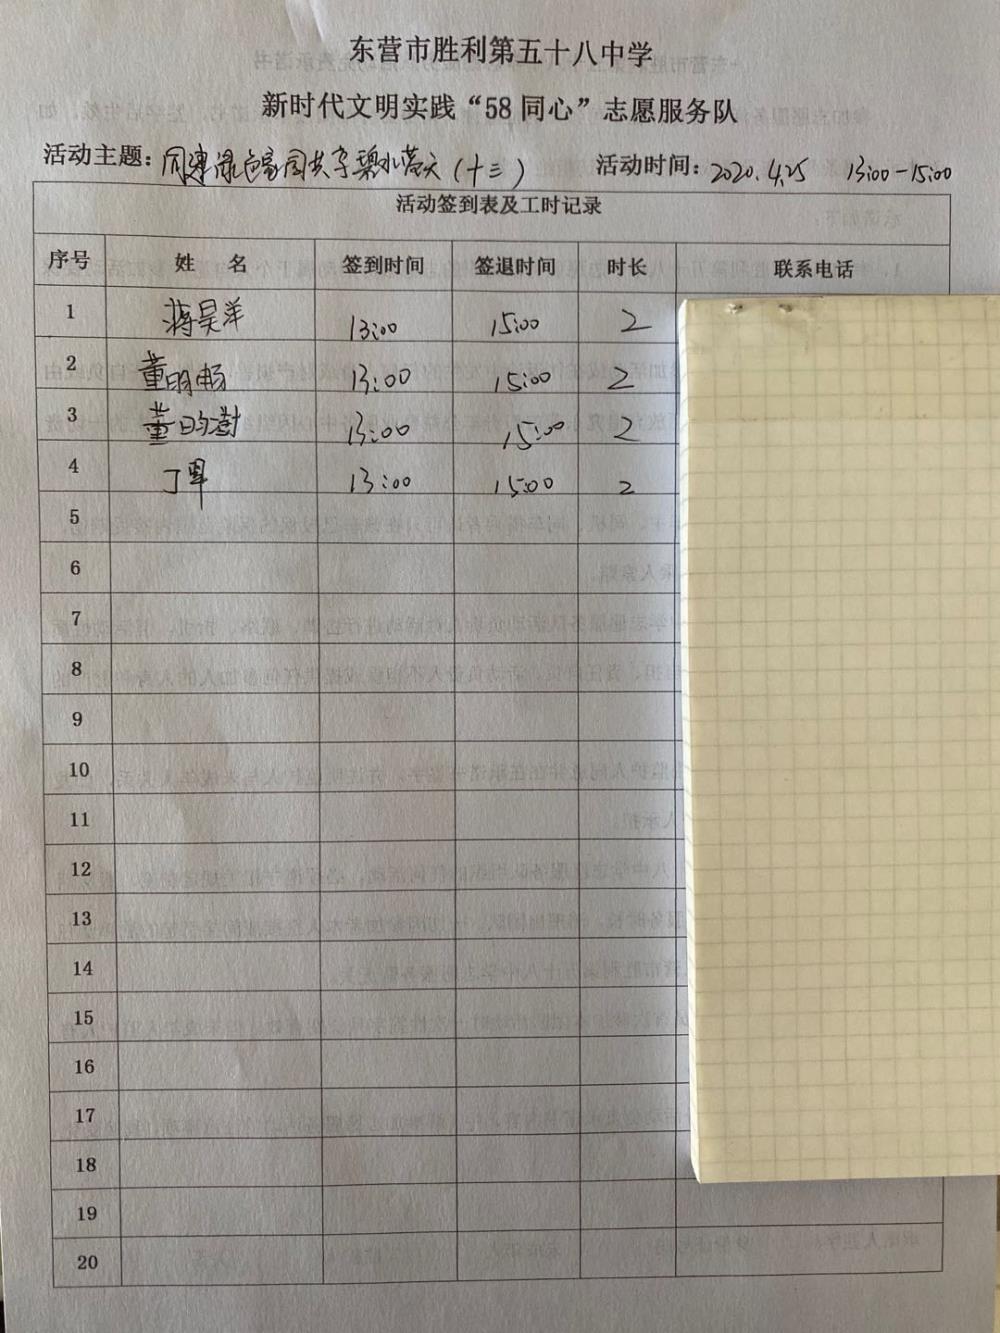 东营市胜利第五十八中学
新时代文明实践“58同心”志愿服务队
活动主题：同建绿色家园共享碧水蓝天（十三） 活动时间：2020.4.25 13:00-15:00
活动签到表及工时记录
序号 姓 名 签到时间 签退时间 时长 联系电话
1 蒋昊洋 13:00 15:00 2
2 董明畅 13:00 15:00 2
3 董昀澍 13:00 15:00 2
4 丁 13:00 15:00 2
5
6
7
8
9
10
11
12
13
14
15
16
17
18
19
20